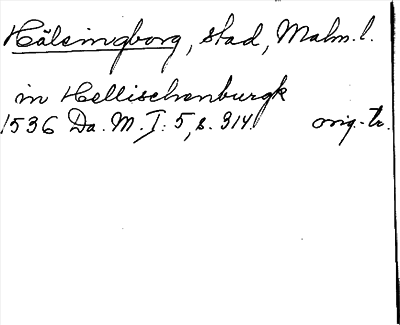 Hälsingborg, stad, Malm. l.
in Hellischenburgk
1536 Da. M. I: 5, s. 314. orig.-tr.